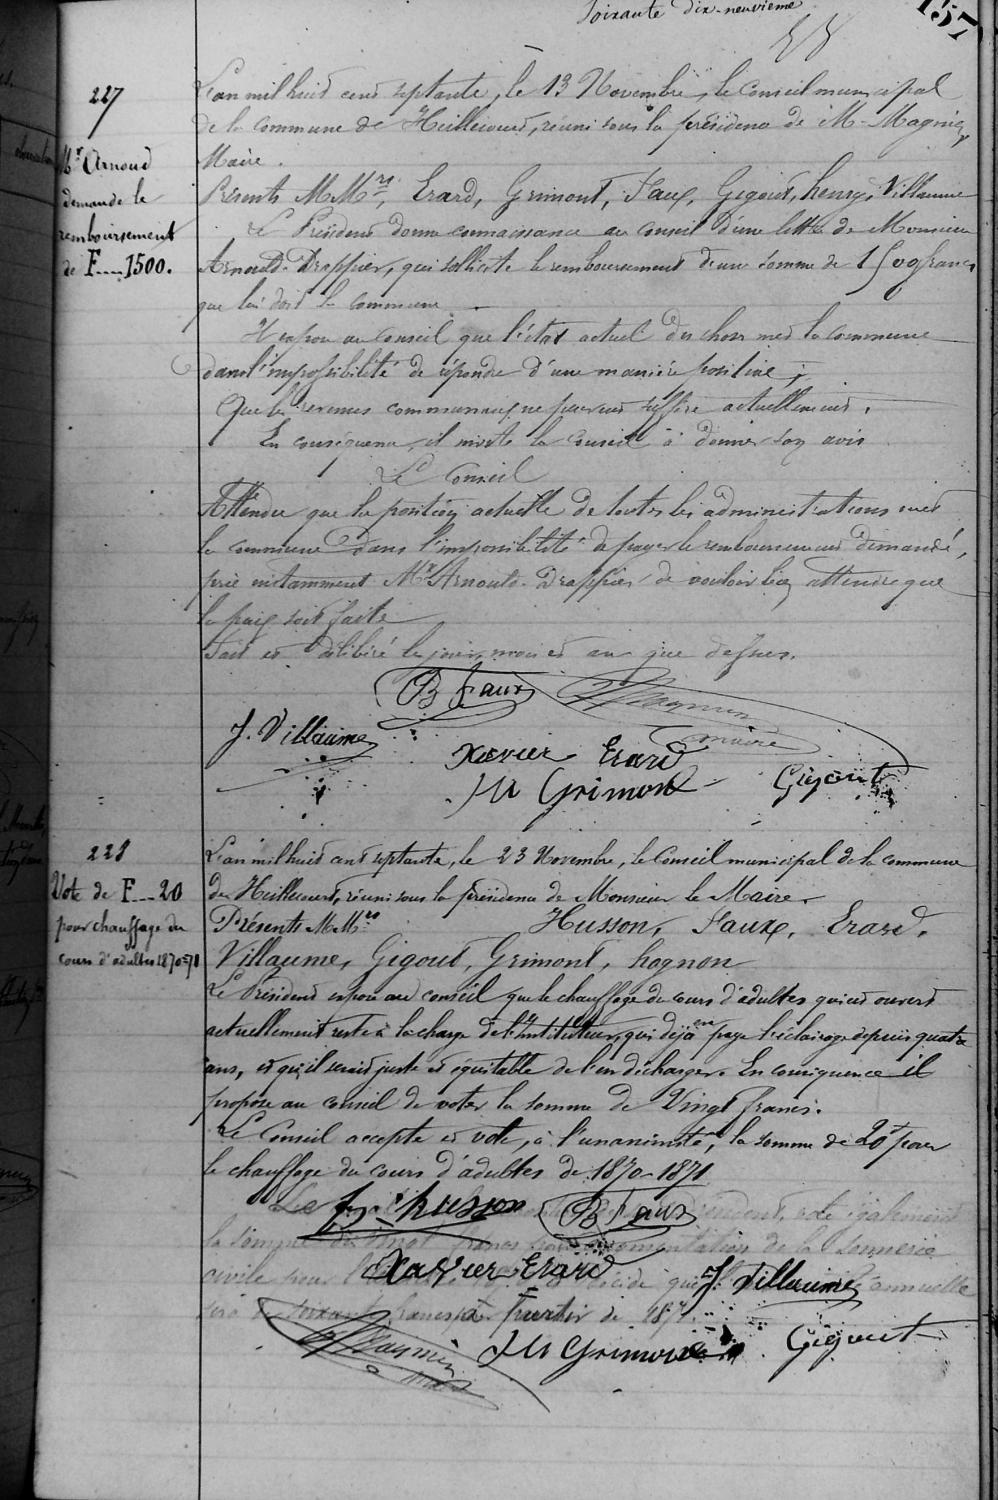 Soixante Dix-neuvième
157
227
Mr Arnoud
demande le
remboursement
de F....1500.
L'an mil huit cent septante, le 13 Novembre, le Conseil municipal
de la commune de Huillécourt, réuni sous la présidence de M. Magnin,
Maire.
Présents M.Mrs, Erard, Grimont, Faux, Gigout, henry, Villaume
Le Président donne connaissance au conseil d'une lettre de Monsieur
Arnould-Drappier, qui sollicite le remboursement d'une somme de 1500 francs
que lui doit la commune.
Il expose au conseil que l'état actuel des choses met la commune
dans l'impossibilité de répondre d'une manière positive;
Que les revenus communaux ne peuvent suffire actuellement.
En conséquence, il invite le Conseil à donner son avis
Le Conseil
Attendu que la position actuelle de toutes les administrations met
la commune dans l'impossibilité de payer le remboursement demandé,
prie instamment Mr Arnould-Drappier de vouloir bien attendre que
la paix soit faite
Fait et délibéré les jour, mois et an que dessus.
B Faux Magnin
maire
J. Villaume
Xavier Erard
M Grimont Gigout
228
Vote de F....20
pour chauffage du
cours d'adultes 1870=71
L'an mil huit cent septante, le 23 Novembre, le Conseil municipal de la commune
de Huillécourt, réuni sous la présidence de Monsieur le Maire.
Présents M.Mrs Husson, Faux, Erard,
Villaume, Gigout, Grimont, hognon
Le Président expose au conseil que le chauffage du cours d'adultes qui est ouvert
actuellement reste à la charge de l'Instituteur, qui déjà en paye l'éclairage depuis quatre
ans, et qu'il serait juste et équitable de l'en décharger. En conséquence il
propose au conseil de voter la somme de Vingt francs.
Le Conseil accepte et vote, à l'unanimité, la somme de 20f pour
le chauffage du cours d'adultes de 1870-1871
Le husson B Faux également
la somme de vingt francs pour augmentation de la sonnerie
civile pour Xavier Erard décide que J. Villaume annuelle
sera de soixante francs à partir de 187
Magnin M Grimont Gigout